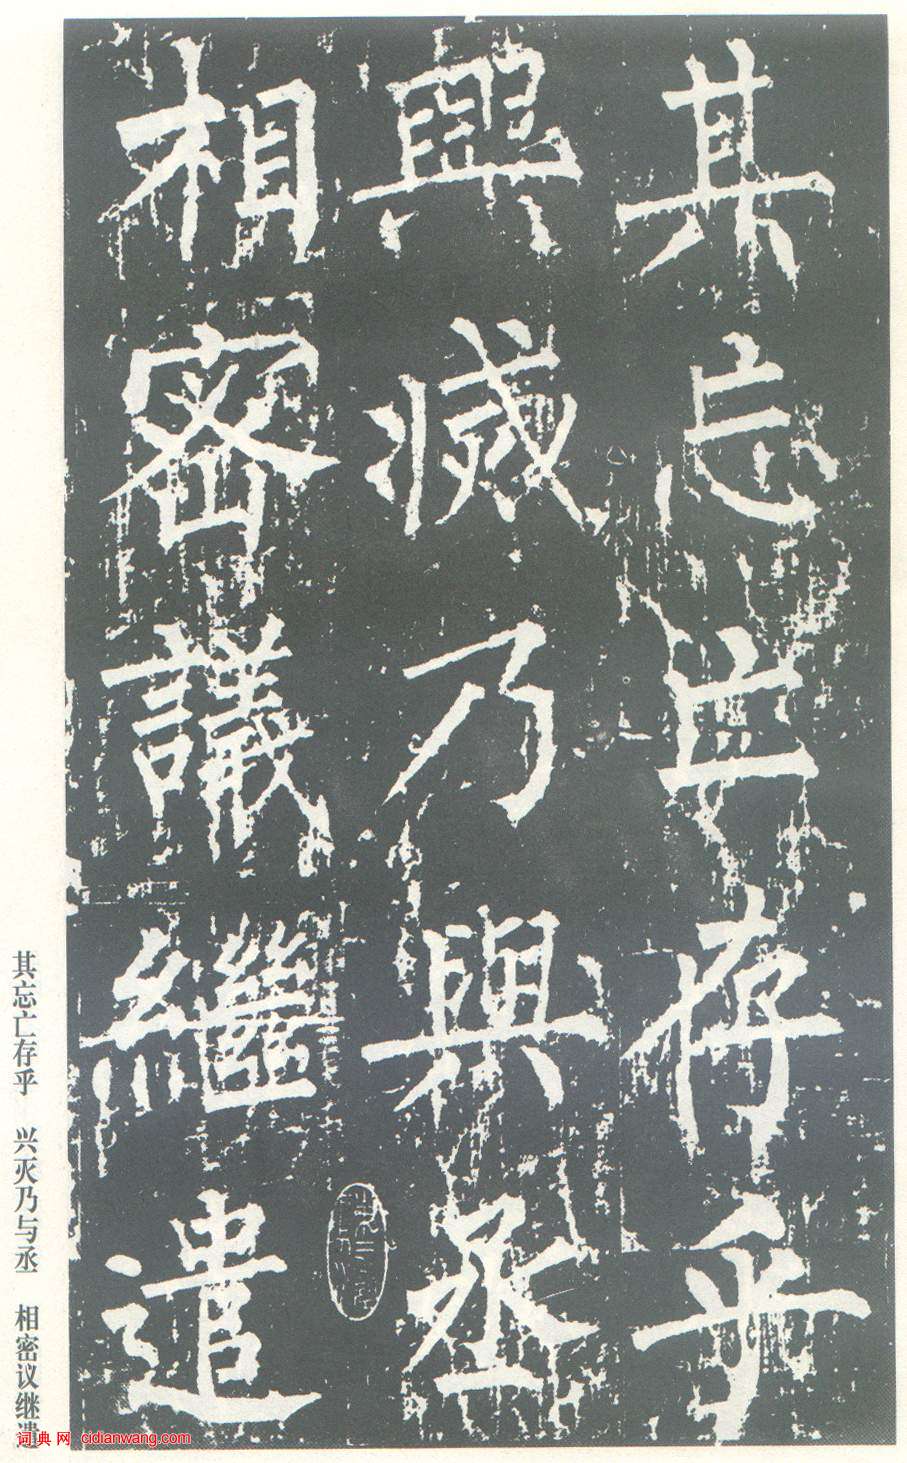 其忘亡存乎
興滅乃與丞
相密議繼遣
其忘亡存乎 兴灭乃与丞 相密议继遣
词典网 cidianwang.com